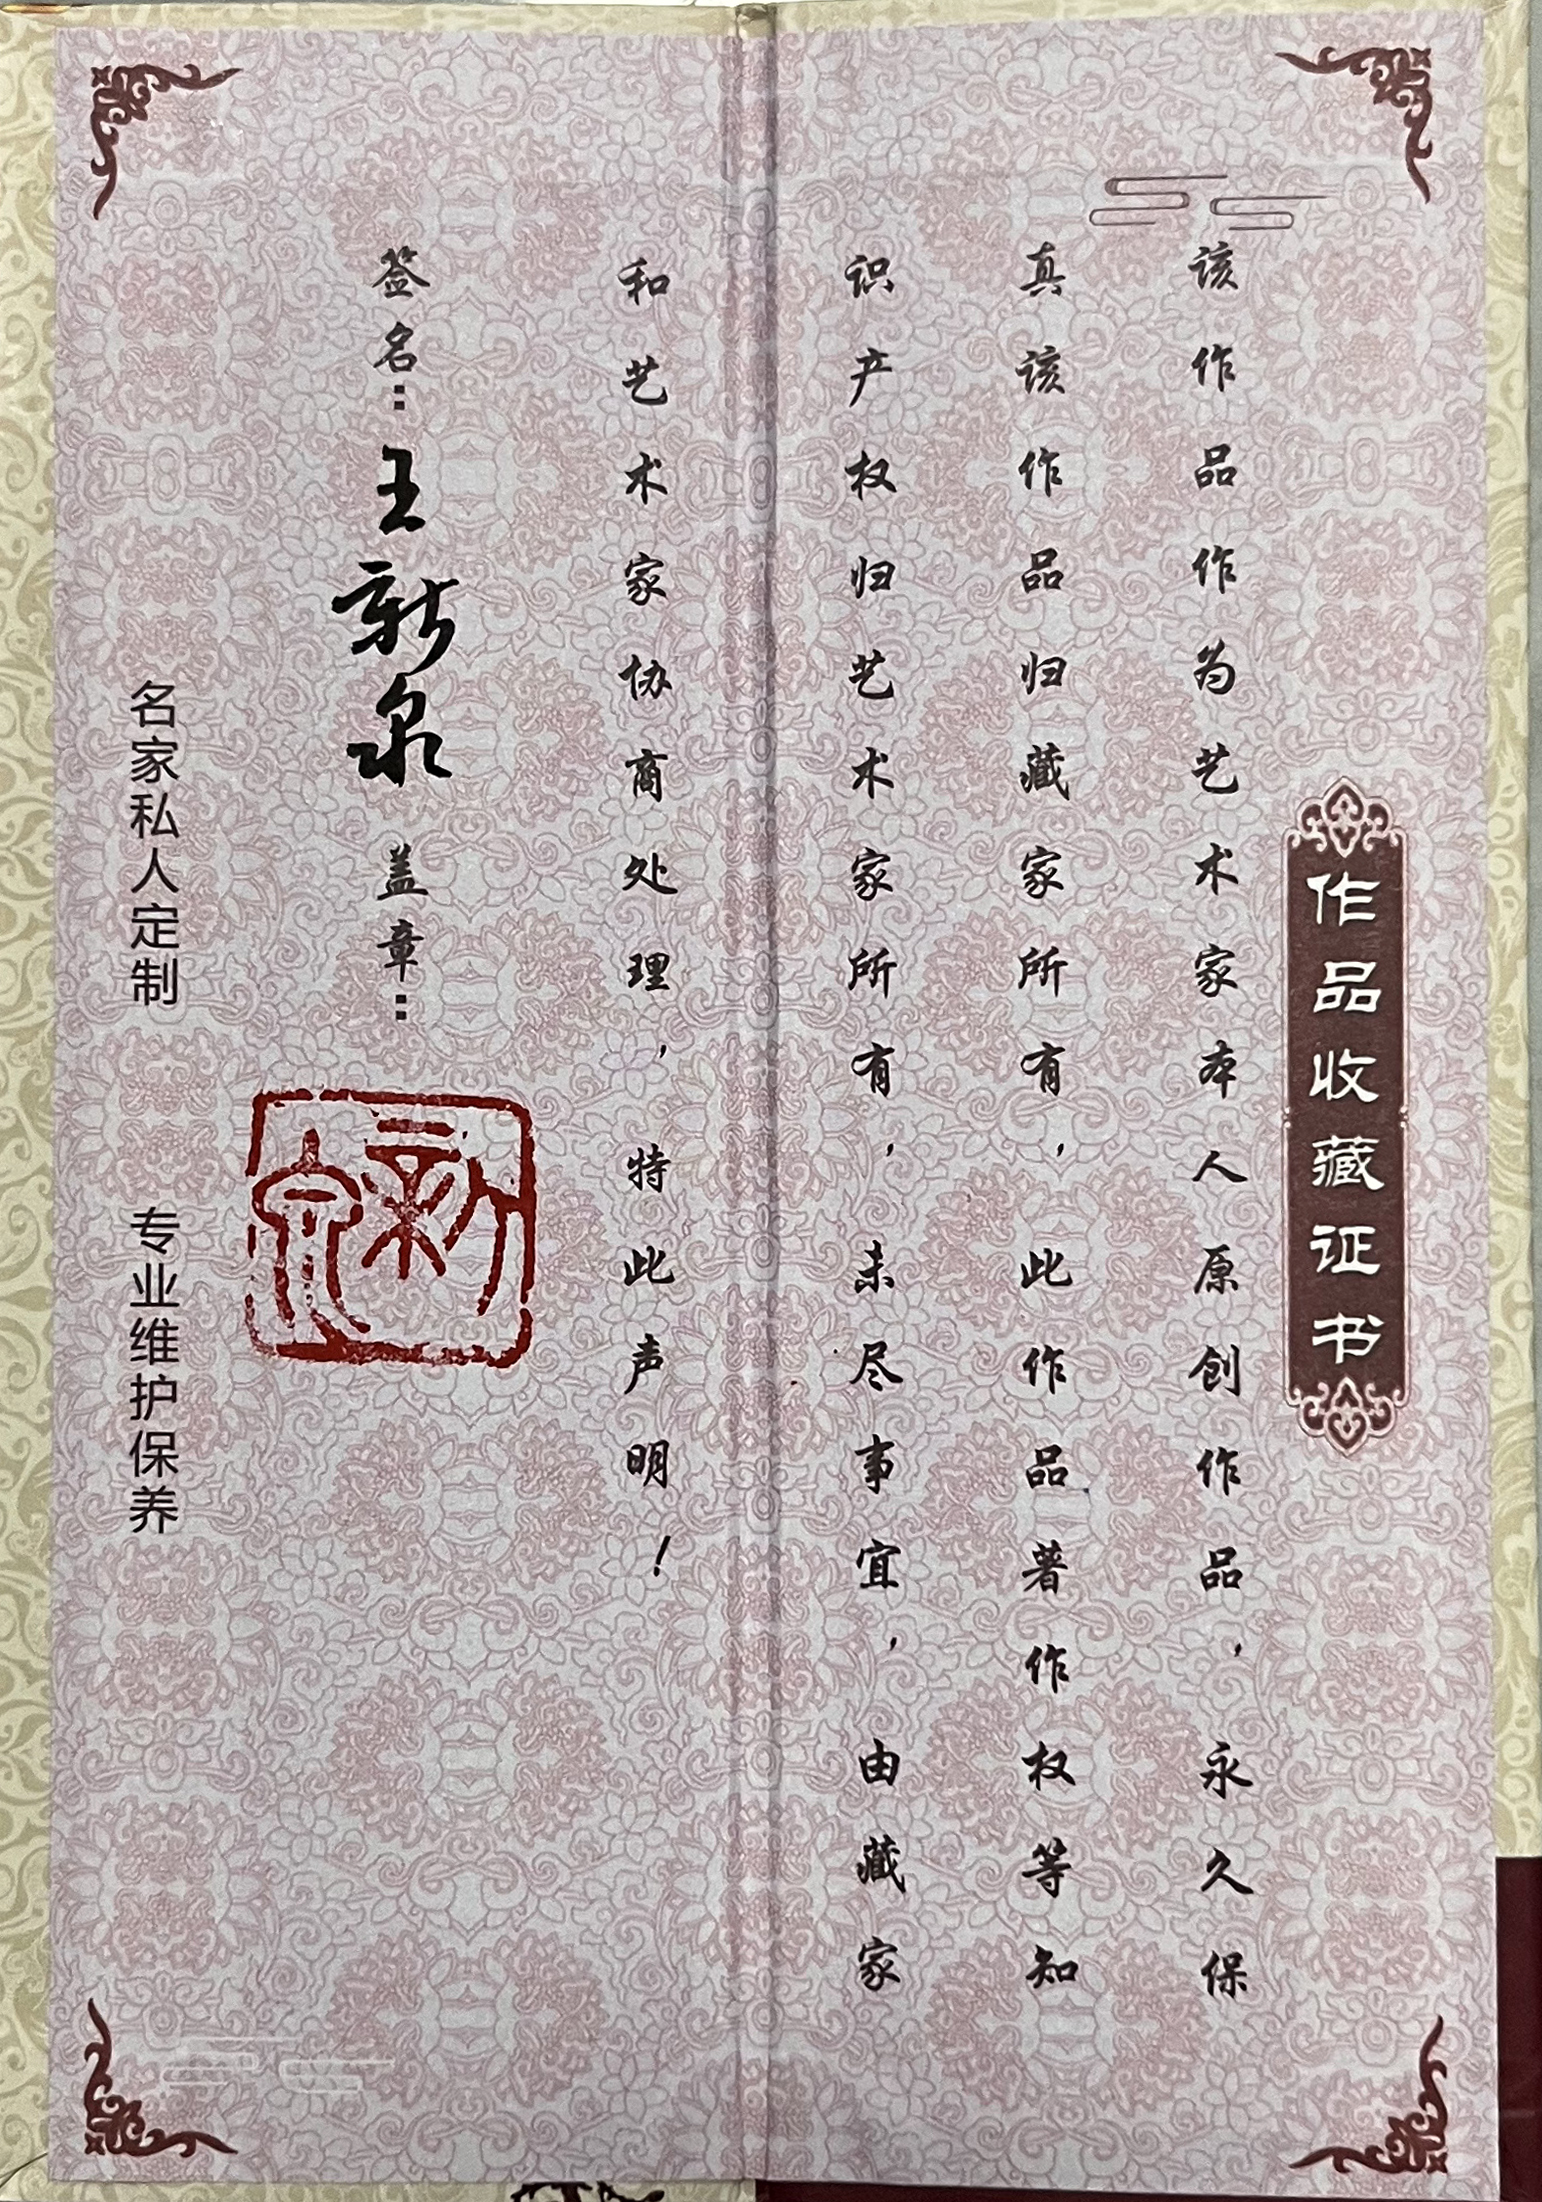 作品收藏证书
该作品作为艺术家本人原创作品，永久保
真该作品归藏家所有，此作品著作权等知
识产权归艺术家所有，未尽事宜，由藏家
和艺术家协商处理，特此声明！
签名：王新泉 盖章：
新泉
名家私人定制 专业维护保养